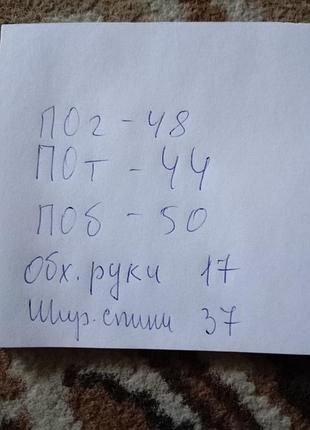 ПОг - 48
ПОт - 44
ПОб - 50
Обх. руки 17
Шир. спини 37